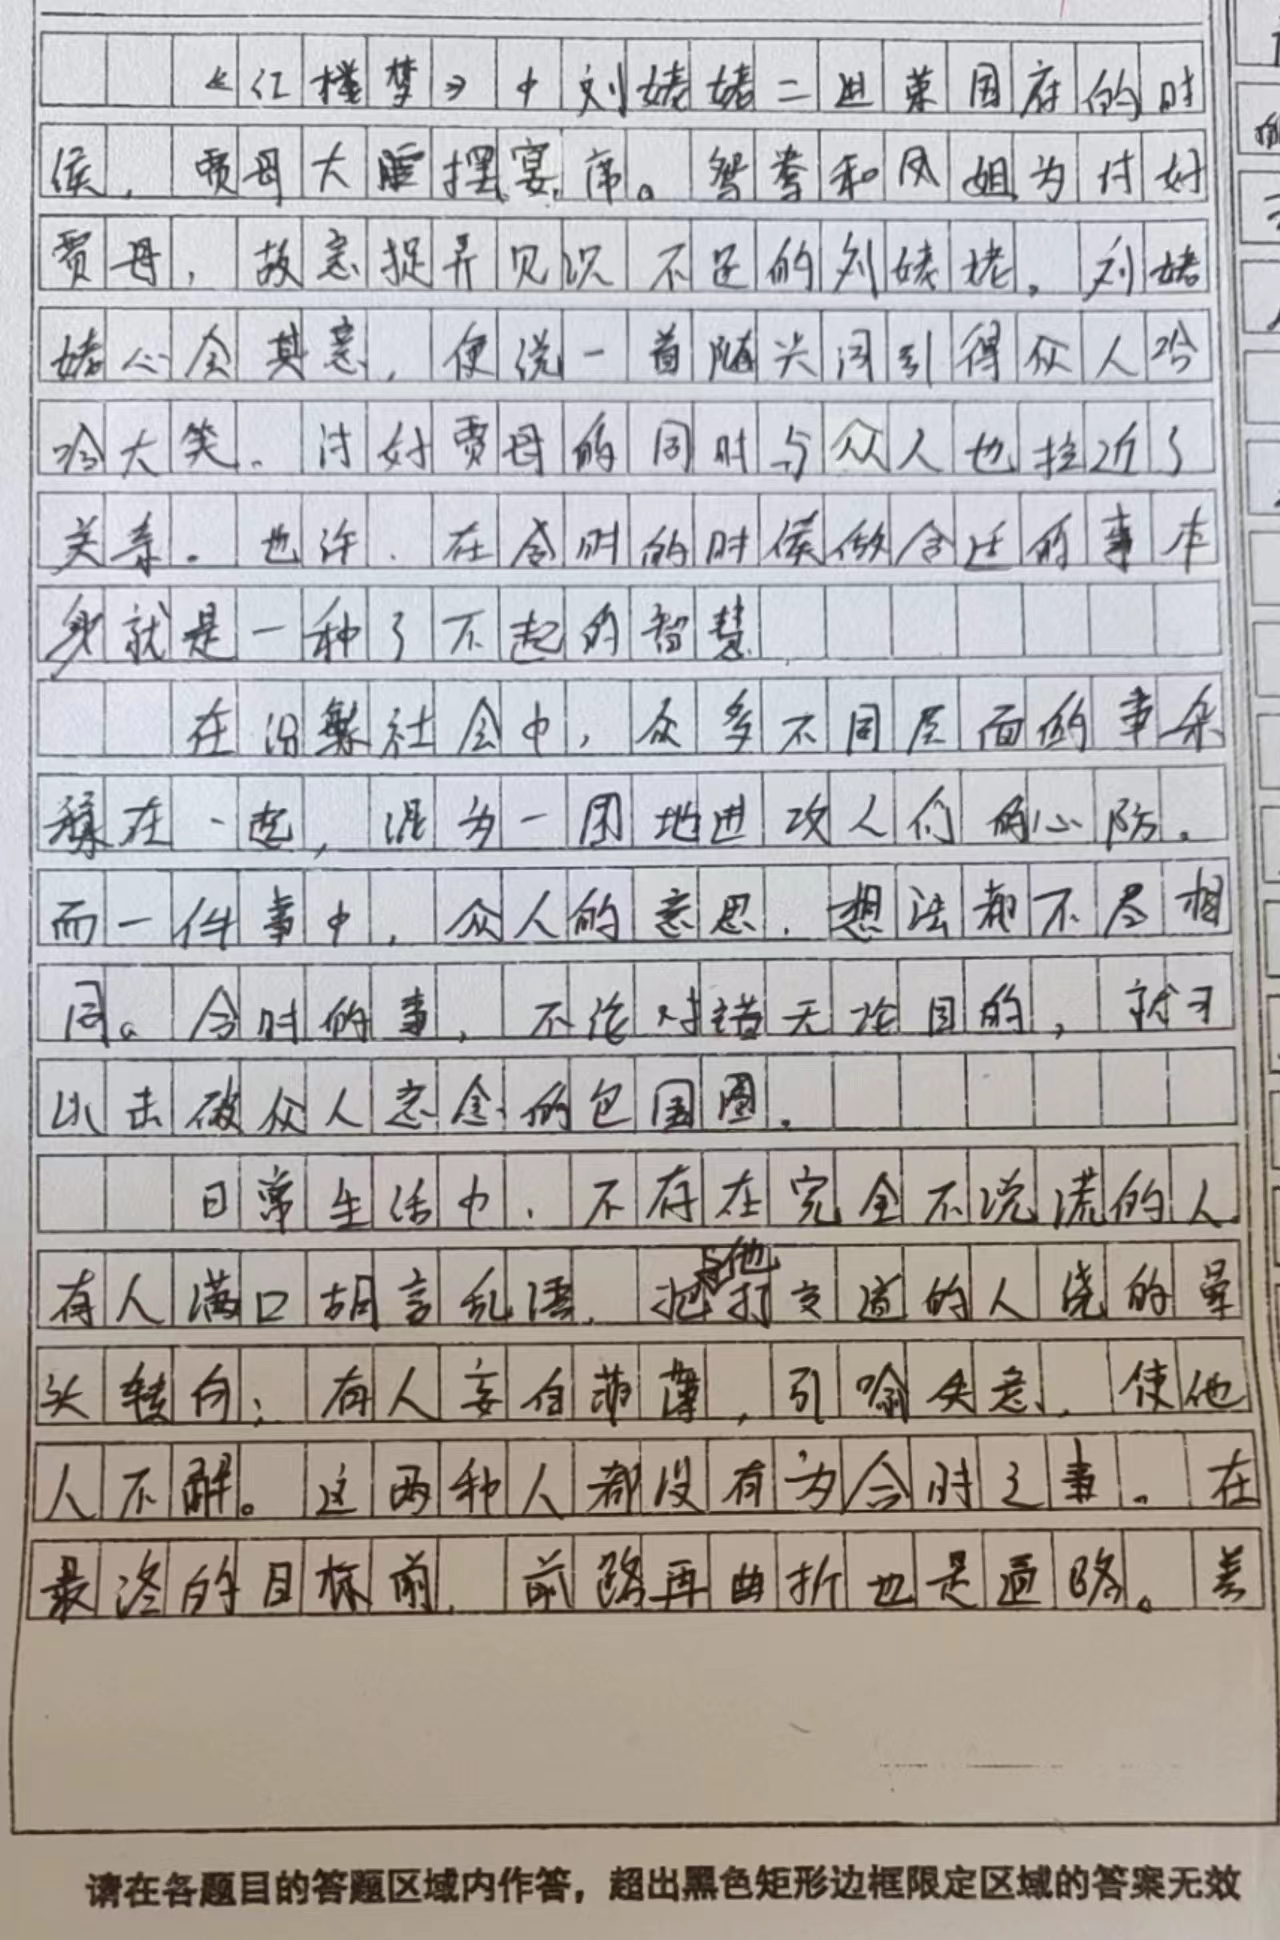 《红楼梦》中刘姥姥二进荣国府的时
侯，贾母大摆宴席。鸳鸯和凤姐为讨好
贾母，故意捉弄见识不足的刘姥姥。刘姥
姥心会其意，便说一首随头词引得众人哈
哈大笑、讨好贾母的同时与众人也拉近了
关系。也许，在合时的时候做合适的事本
身就是一种了不起的智慧
在纷繁社会中，众多不同层面的事杂
糅在一起，混为一团地进攻人们的心防。
而一件事中，众人的意思，想法都不尽相
同。合时的事，不论对错无论目的，就可
以击破众人意念的包围圈。
日常生活中，不存在完全不说谎的人
有人满口胡言乱语，把与他打交道的人绕的晕
头转向；有人妄自菲薄，引喻失意，使他
人不解。这两种人都没有为合时之事。在
最终的目标前，前路再曲折也是通路。善
请在各题目的答题区域内作答，超出黑色矩形边框限定区域的答案无效